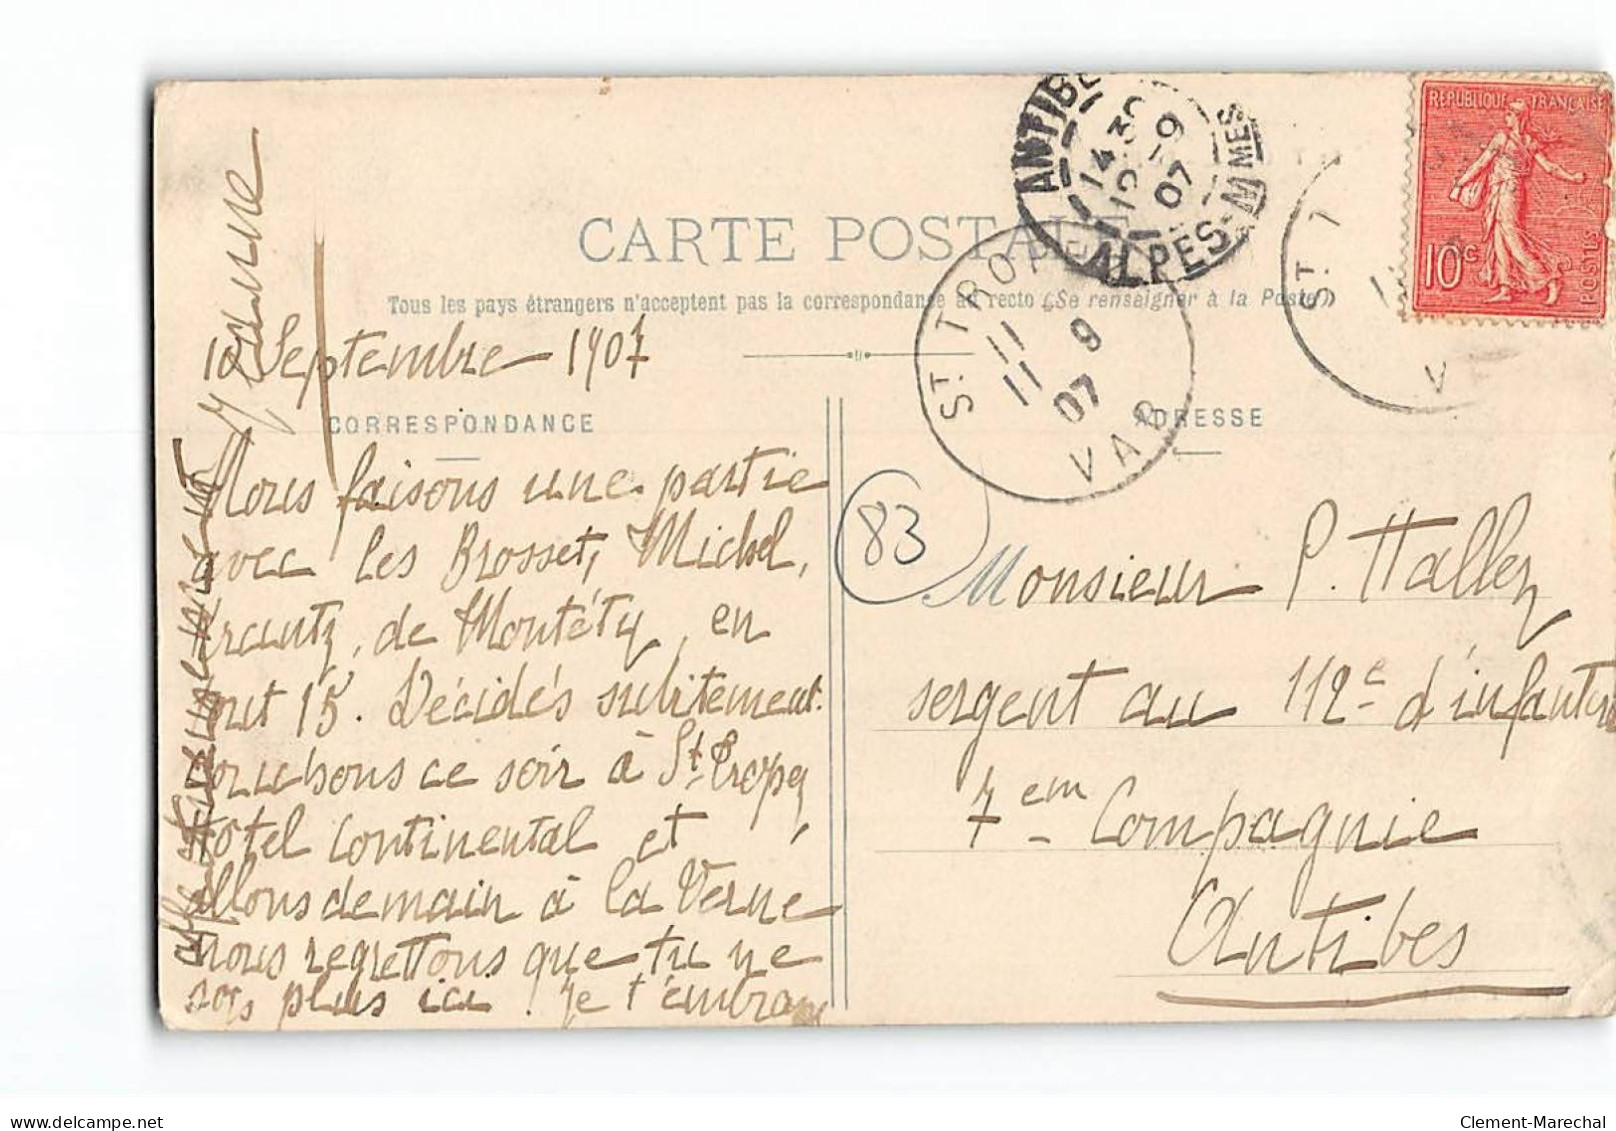 CARTE POSTALE
Tous les pays étrangers n'acceptent pas la correspondance au recto (Se renseigner à la Poste)
10 Septembre 1907
CORRESPONDANCE
Nous faisons une partie
avec les Brosset, Michel,
Krantz, de Montéty, en
tout 15. Décidés subitement.
couchons ce soir à St Tropez
Hôtel Continental et
allons demain à la Verne
nous regrettons que tu ne
sois plus ici. Je t'embrasse
affectueusement
ADRESSE
Monsieur P. Haller
sergent au 112e d'infanterie
7em Compagnie
Antibes
83
ANTIBES
14 30
12 -9
07
ALPES-MMES
ST. TROPEZ
11 9
11 07
VAR
ST. T
VAR
RÉPUBLIQUE FRANÇAISE
10c
POSTES
Clement-Marechal